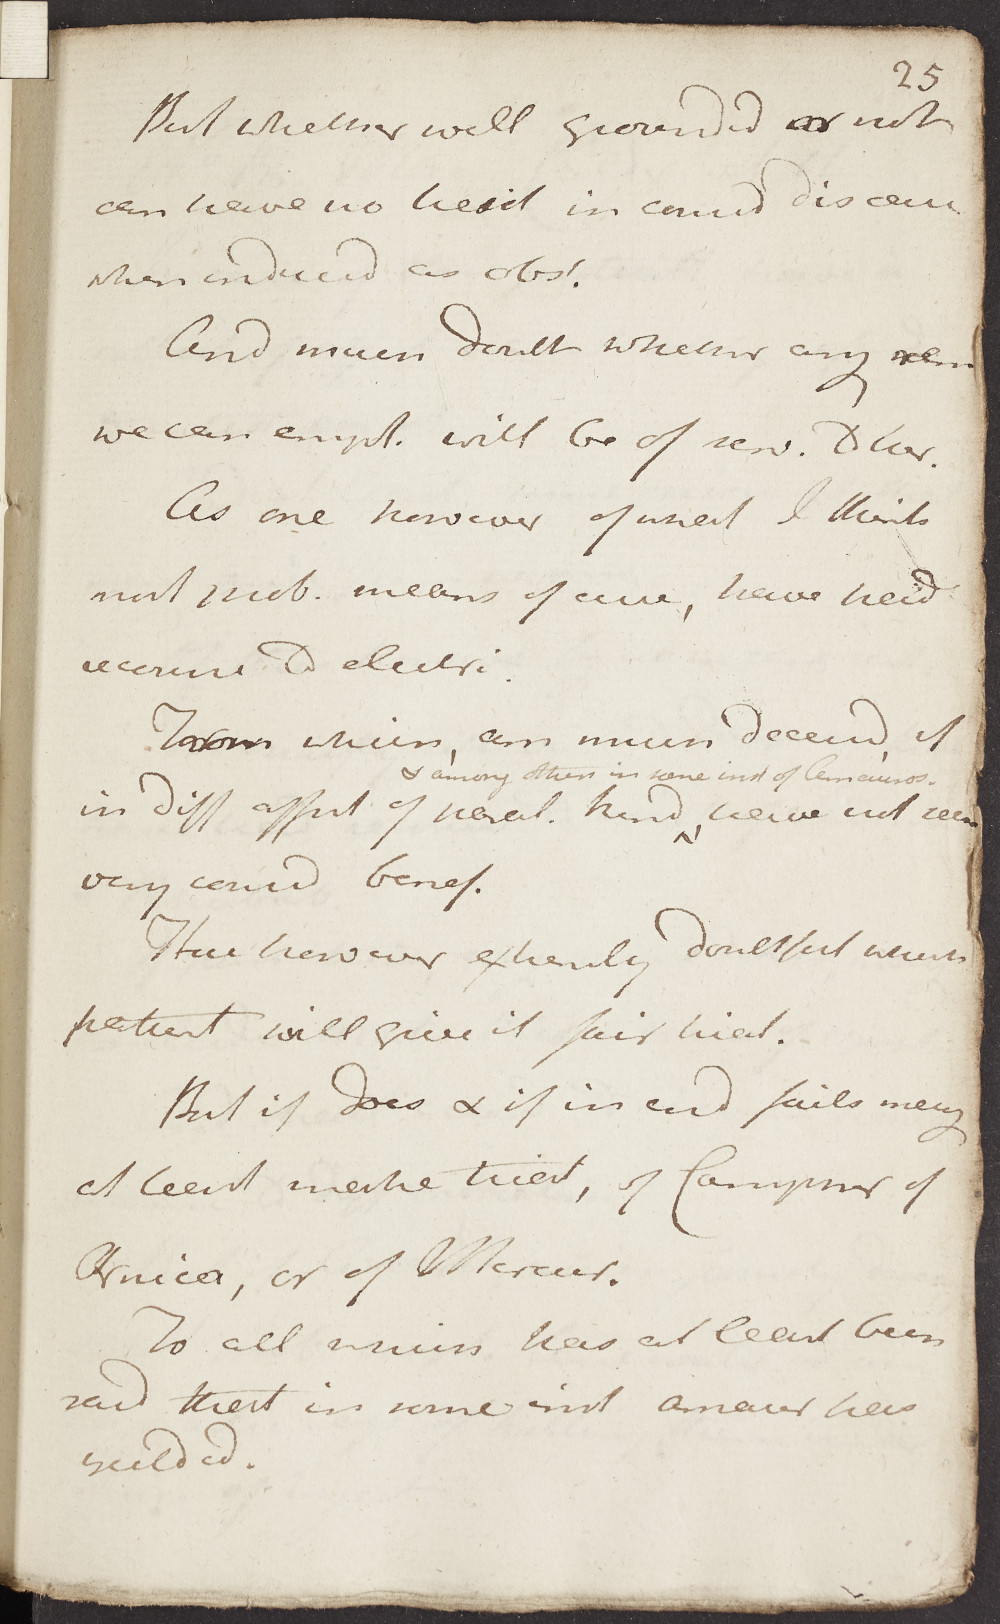 25
But whether well grounded or not
can have no hesit in consid discau
when induced as obst.
And much doubt whether any rem
we can empl. will be of serv. to her.
As one however of what I think
most prob. means of cure, have had
recourse to electri.
From which, am much deceivd, if
& among others in some inst of Amauros.
in diff affect of paral. kind, have not seen
very consid benef.
Here however extremly doubtful wheth
patient will give it fair trial.
But if does & if in end fails may
at least make trial, of Camphor of
Arnica, or of Mercur.
To all which has at least been
said that in some inst amaur has
yeilded.